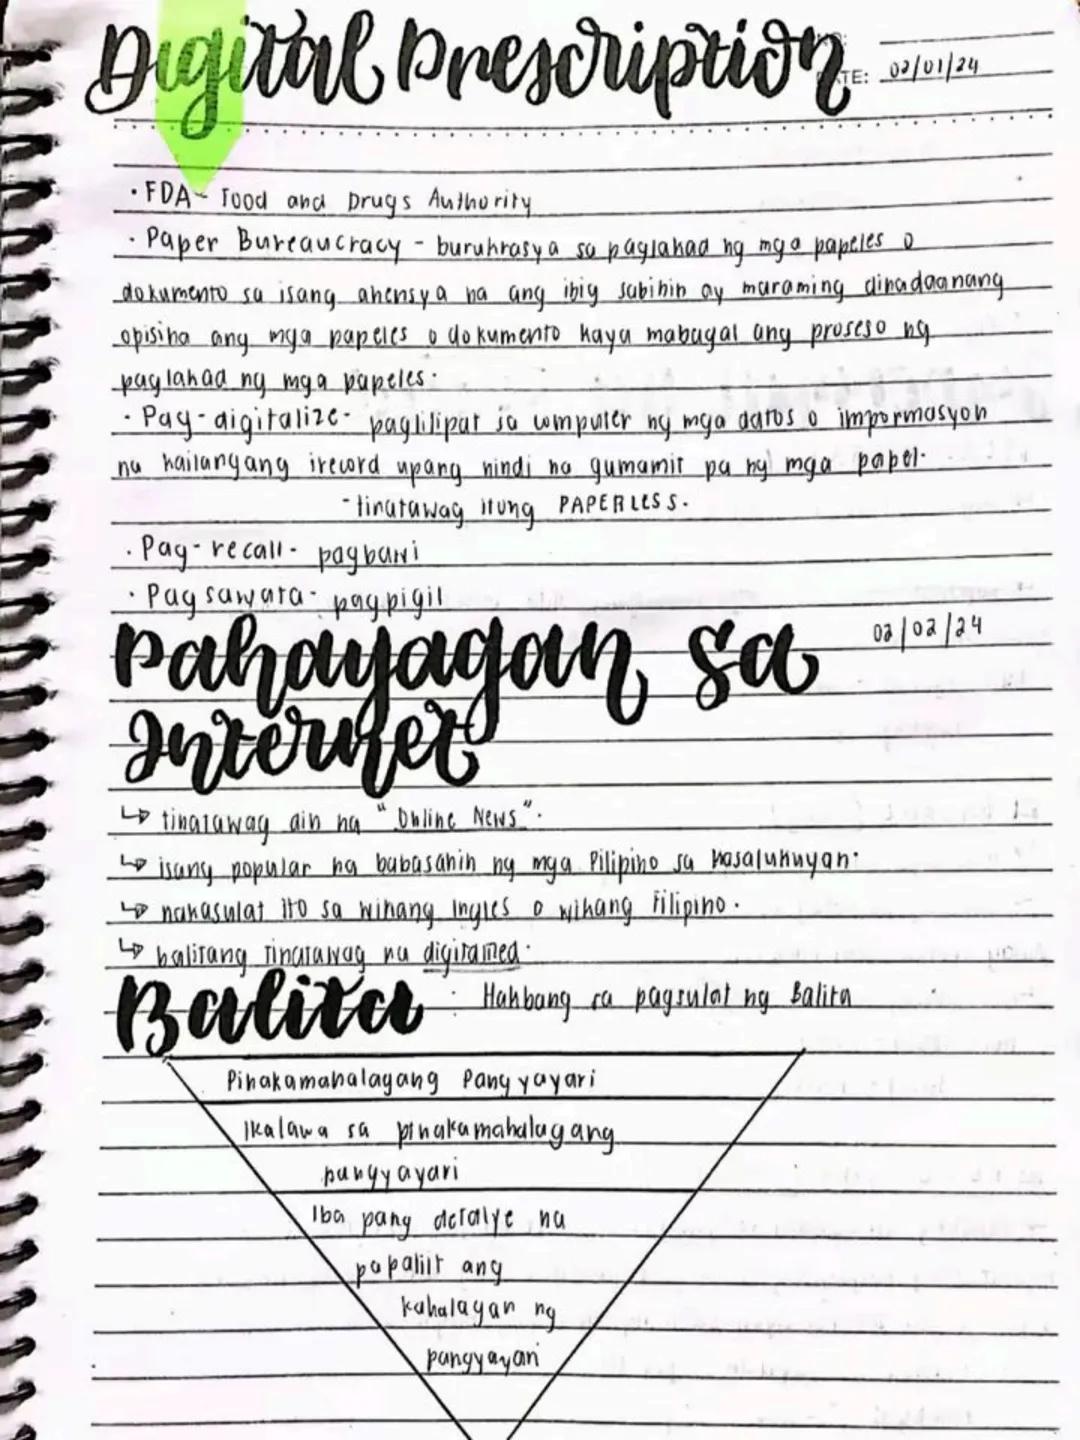 Digital Prescription
DATE: 02/01/24
· FDA - Food and Drugs Authority
· Paper Bureaucracy - burukrasya sa paglahad ng mga papeles o
dokumento sa isang ahensya na ang ibig sabihin ay maraming dinadaanang
opisina ang mga papeles o dokumento kaya mabagal ang proseso ng
paglahad ng mga papeles.
· Pag-digitalize - paglilipat sa computer ng mga datos o impormasyon
na kailangang irecord upang hindi na gumamit pa ng mga papel.
- tinatawag itong PAPERLESS.
· Pag-recall - pagbawi
· Pagsawata - pagpigil
Pahayagan sa
02/02/24
Internet
↳ tinatawag din na "Online News".
↳ isang popular na babasahin ng mga Pilipino sa kasalukuyan.
↳ nakasulat ito sa wikang Ingles o wikang Filipino.
↳ balitang tinatawag na digitained.
Balita : Hakbang sa pagsulat ng Balita
Pinakamahalagang Pangyayari
Ikalawa sa pinakamahalagang
pangyayari
Iba pang detalye na
papaliit ang
kahalagan ng
pangyayari